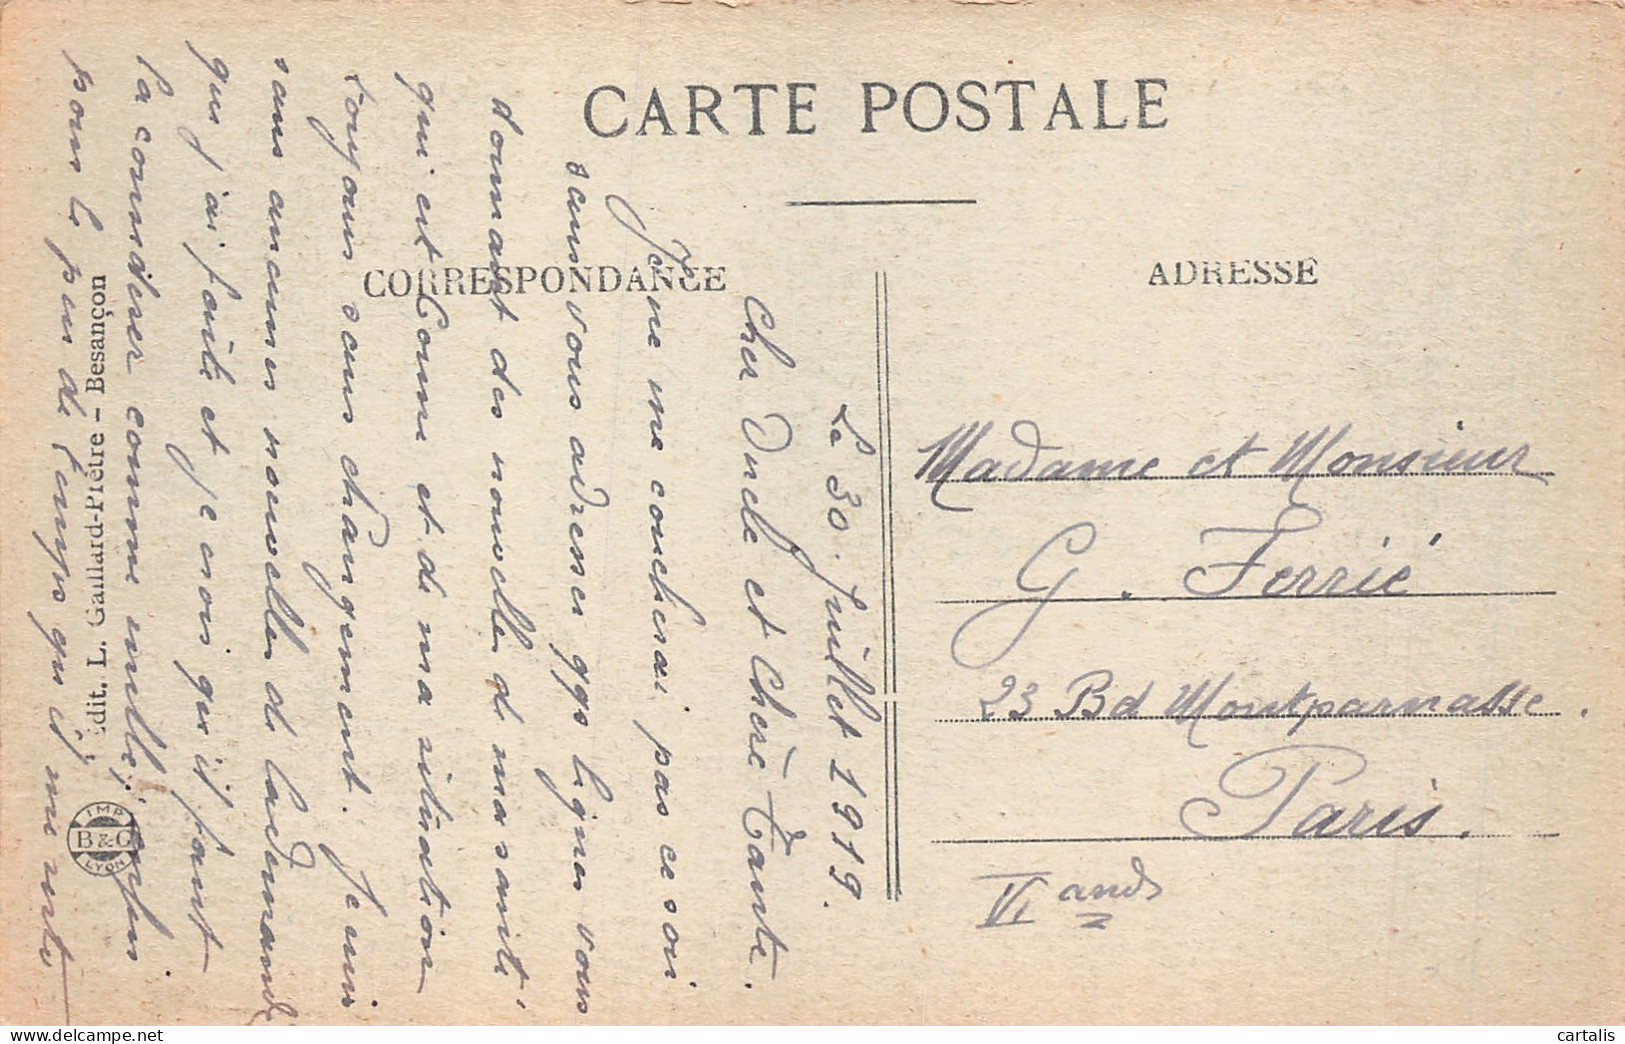 CARTE POSTALE
CORRESPONDANCE
ADRESSE
Le 30 Juillet 1919.
Cher Oncle et Chère Tante.
Je ne me coucherai pas ce soir
sans vous adresser qqs lignes vous
donnant des nouvelles de ma santé
qui est bonne et de ma situation
toujours sans changement. Je suis
sans aucunes nouvelles de la demande
que j'ai faite et je crois qu'il faut
la considérer comme nulle; enfin
pour le peu de temps qu'il me reste
Madame et Monsieur
G. Ferrié
23 Bd Montparnasse.
Paris.
VI
Edit. L. Gaillard-Prêtre - Besançon
IMP
B & C
LYON
cartalis